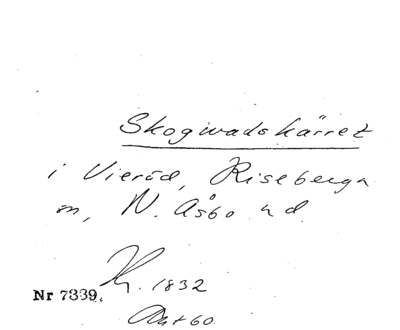 Skogwadskärret
i Vieröd, Riseberga
m, N. Åsbo hd.
Kr. 1832
Nr 7339.
Akt 60.